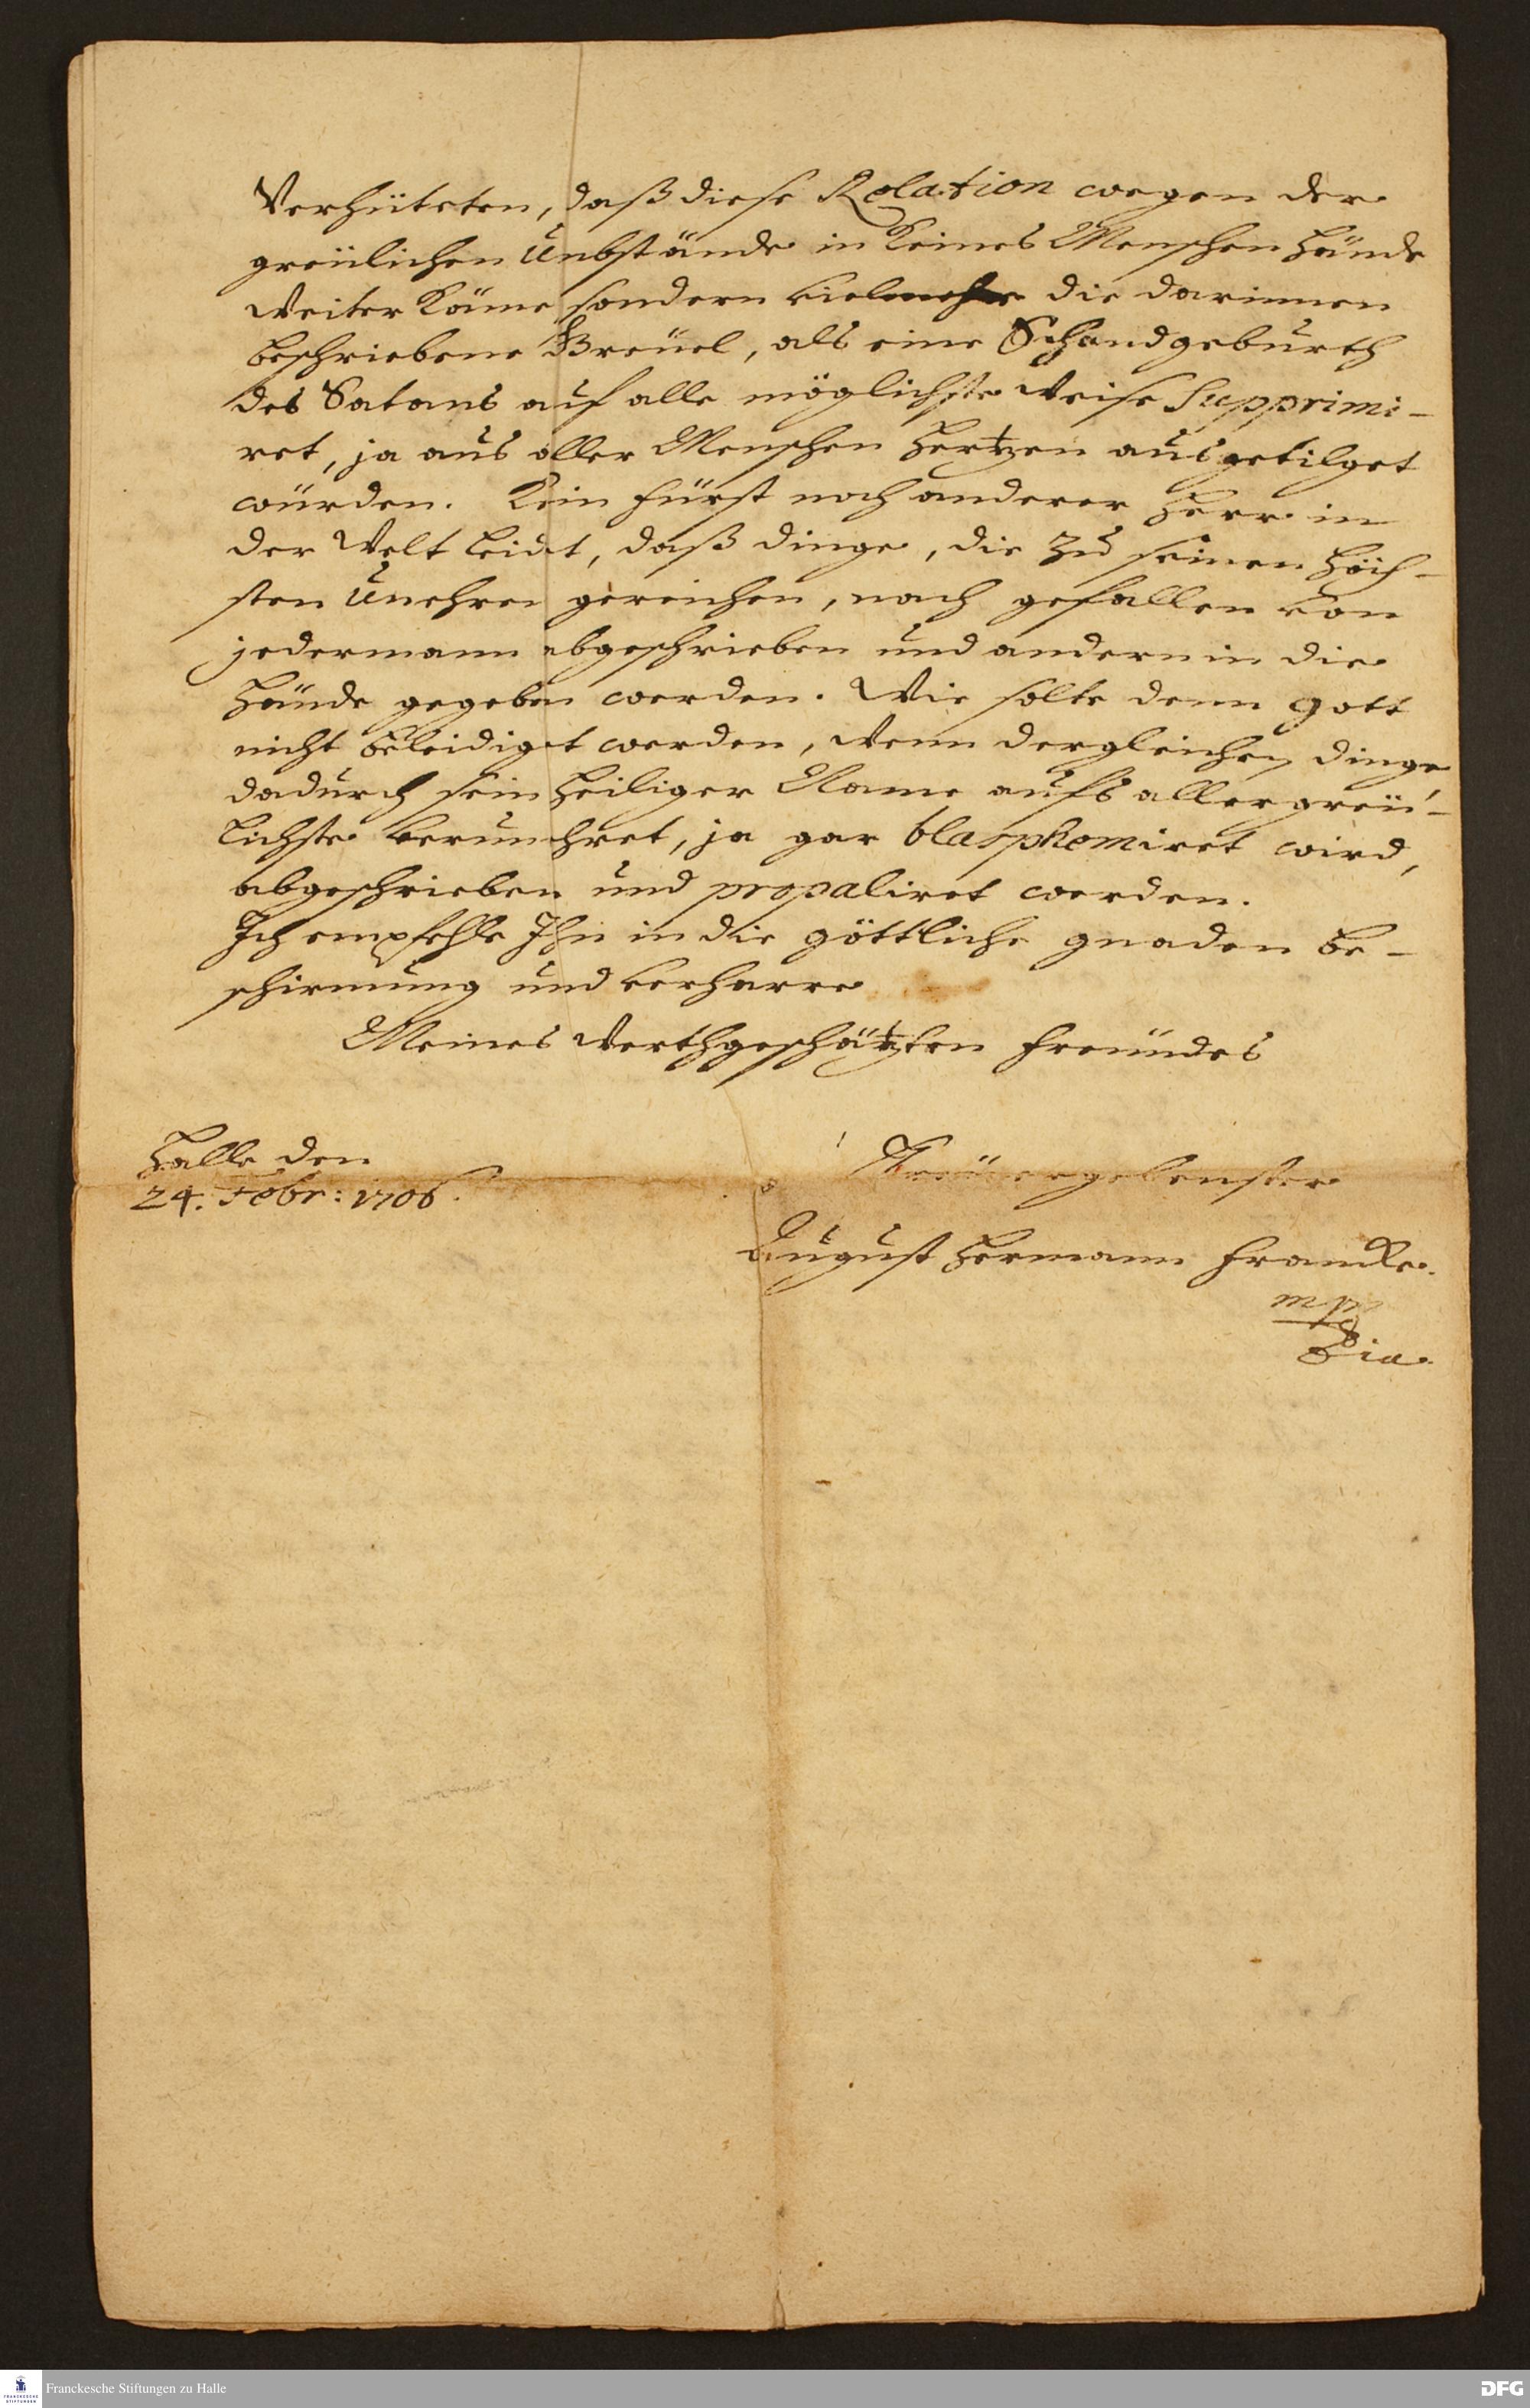 Verhüteten, daß diese Relation wegen der
greülichen Umbstände in keines Menschen Hände
weiter käme sondern vielmehr die darinnen
beschriebene Greüel, als eine Schandgeburth
des Satans auf alle möglichste weise Supprimi-
ret, ja aus aller Menschen Hertzen ausgetilget
würden. Kein Fürst noch anderer Herr in
der Welt leidet, daß dinge, die zu seinen höch-
sten Unehren gereichen, nach gefallen von
jedermann abgeschrieben und andern in die
Hände gegeben werden. Wie solte denn Gott
nicht beleidiget werden, wenn dergleichen dinge
dadurch sein Heiliger Name aufs allergreü-
lichste verunehret, ja gar blasphemiret wird,
abgeschrieben und propaliret werden.
Ich empfehle Ihn in die göttliche gnaden be-
schirmung und verharre
Meines Werthgeschätzten Freündes
Halle den
24. Febr: 1706.
Treüergebenster
August Hermann Francke.
mp
Franckesche Stiftungen zu Halle
FRANCKESCHE
STIFTUNGEN
DFG